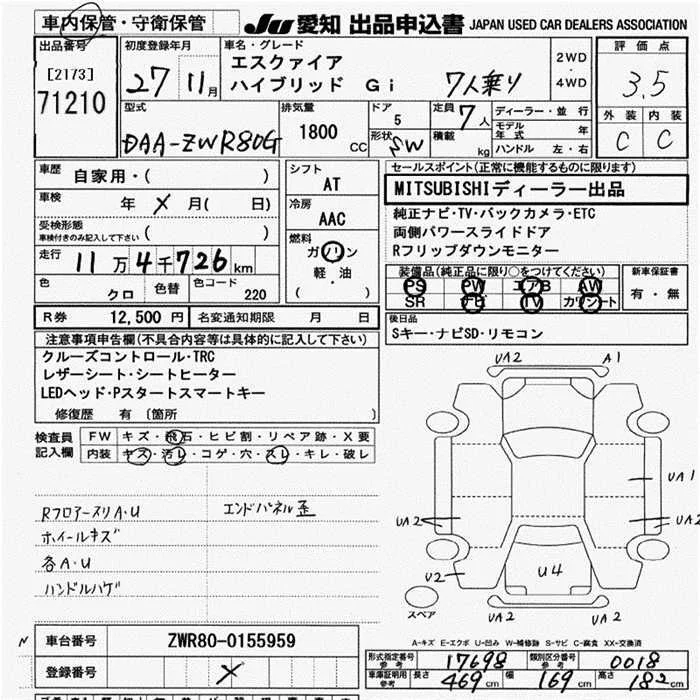 車内保管・守衛保管
JU 愛知 出品申込書 JAPAN USED CAR DEALERS ASSOCIATION
出品番号
[2173]
71210
初度登録年月
27 11月
車名・グレード
エスクァイア
ハイブリッド Gi 7人乗り
2WD
・
4WD
評価点
3.5
外装 内装
C C
型式
DAA-ZWR80G
排気量
1800 CC
ドア
5
形状
SW
定員 7人
積載 kg
ディーラー・並行
モデル年式 年
ハンドル 左・右
車歴
自家用・( )
車検
年 X 月( 日)
受検形態
車検付きのみ記入して下さい ( )
走行
11万4千726km
色
クロ
色替
色コード
220
シフト
AT
冷房
AAC
燃料
ガソリン
軽・油
( )
セールスポイント(正常に機能するものに限ります)
MITSUBISHIディーラー出品
純正ナビ・TV・バックカメラ・ETC
両側パワースライドドア
Rフリップダウンモニター
装備品(純正品に限り○をつけてください)
PS PW エアB AW
SR ナビ TV カワシート
新車保証書
有・無
R券 12,500円 名変通知期限 月 日
後日品
Sキー・ナビSD・リモコン
注意事項申告欄(不具合内容等は具体的に記入して下さい)
クルーズコントロール・TRC
レザーシート・シートヒーター
LEDヘッド・Pスタートスマートキー
修復歴 有 〔箇所 〕
検査員
記入欄
FW キズ・飛石・ヒビ割・リペア跡・X要
内装 キズ・汚レ・コゲ・穴・スレ・キレ・破レ
Rフロアースリ A・U
ホイールキズ
各A・U
ハンドルハゲ
エンドパネル歪
UA2 A1
UA1
UA2 UA2
U2 U4
スペア
UA2 UA2
A-キズ E-エクボ U-凹み W-補修跡 S-サビ C-腐食 XX-交換済
N
車台番号 ZWR80-0155959
登録番号 X
形式指定番号 参考 17698 類別区分番号 参考 0018
車庫証明用 参考 長さ 469cm 幅 169cm 高さ 182cm